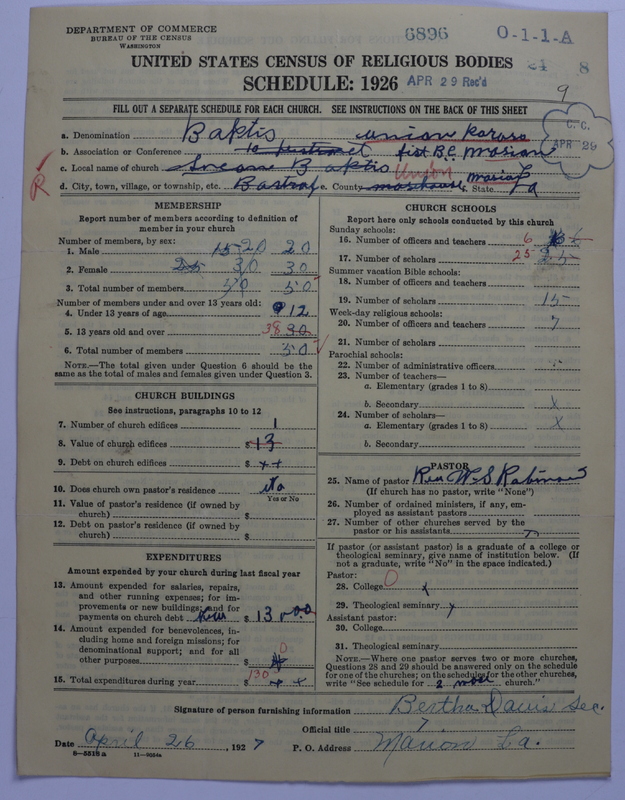 DEPARTMENT OF COMMERCE
BUREAU OF THE CENSUS
WASHINGTON
6896
0-1-1-A
UNITED STATES CENSUS OF RELIGIOUS BODIES
24 8
SCHEDULE: 1926
APR 29 Rec'd
9
FILL OUT A SEPARATE SCHEDULE FOR EACH CHURCH. SEE INSTRUCTIONS ON THE BACK OF THIS SHEET
C. C.
APR 29
a. Denomination Baptis union
b. Association or Conference fist B.C. Marion
c. Local name of church Baptis Union
d. City, town, village, or township, etc. Bastrop e. County f. State La
MEMBERSHIP
Report number of members according to definition of member in your church
Number of members, by sex:
1. Male 15 20 20
2. Female 25 30 30
3. Total number of members 50 50
Number of members under and over 13 years old:
4. Under 13 years of age 12
5. 13 years old and over 38 30
6. Total number of members 50
NOTE.—The total given under Question 6 should be the same as the total of males and females given under Question 3.
CHURCH BUILDINGS
See instructions, paragraphs 10 to 12
7. Number of church edifices 1
8. Value of church edifices $ 13
9. Debt on church edifices $ x x
10. Does church own pastor's residence No
Yes or No
11. Value of pastor's residence (if owned by church) $
12. Debt on pastor's residence (if owned by church) $
EXPENDITURES
Amount expended by your church during last fiscal year
13. Amount expended for salaries, repairs, and other running expenses; for improvements or new buildings; and for payments on church debt $ 130.00
14. Amount expended for benevolences, including home and foreign missions; for denominational support; and for all other purposes $ 0
15. Total expenditures during year $ 130 x x
CHURCH SCHOOLS
Report here only schools conducted by this church
Sunday schools:
16. Number of officers and teachers 6
17. Number of scholars 25 25
Summer vacation Bible schools:
18. Number of officers and teachers
19. Number of scholars 15
Week-day religious schools:
20. Number of officers and teachers 7
21. Number of scholars
Parochial schools:
22. Number of administrative officers
23. Number of teachers—
a. Elementary (grades 1 to 8)
b. Secondary x
24. Number of scholars—
a. Elementary (grades 1 to 8) x
b. Secondary
PASTOR
25. Name of pastor Rev W S
(If church has no pastor, write "None")
26. Number of ordained ministers, if any, employed as assistant pastors
27. Number of other churches served by the pastor or his assistants
If pastor (or assistant pastor) is a graduate of a college or theological seminary, give name of institution below. (If not a graduate, write "No" in the space indicated.)
Pastor: 0
28. College x
29. Theological seminary x
Assistant pastor:
30. College
31. Theological seminary
NOTE.—Where one pastor serves two or more churches, Questions 28 and 29 should be answered only on the schedule for one of the churches; on the schedules for the other churches, write "See schedule for 2 more church."
Signature of person furnishing information Bertha Davis Sec.
Official title
Date April 26, 1927 P. O. Address Marion La.
8—5518 a 11—9054a